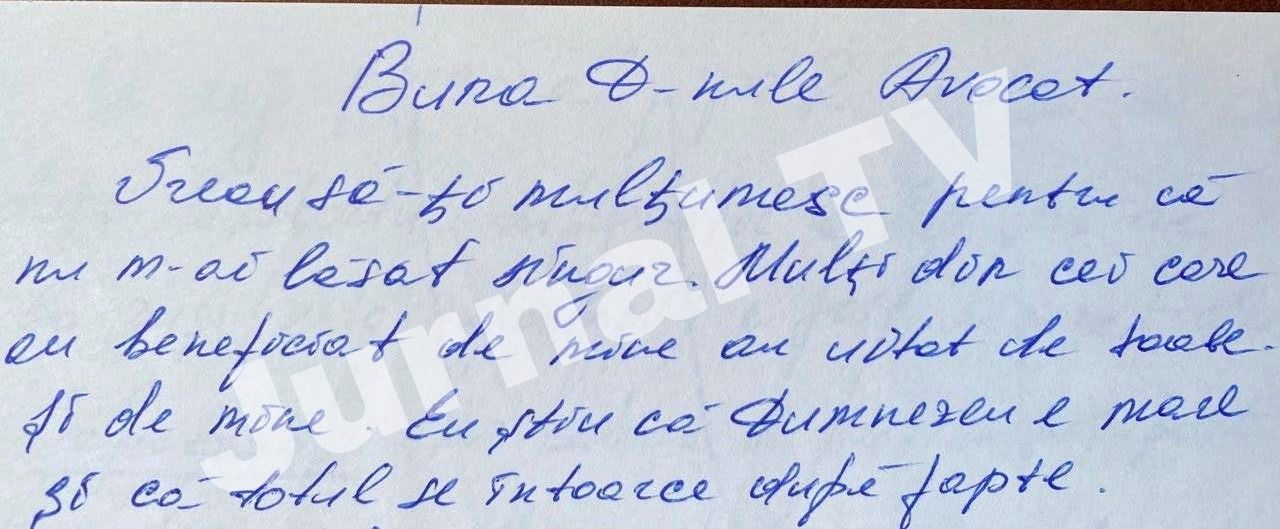 Buna D-nule Avocat.
Vreau să-ți mulțumesc pentru că
nu m-ai lăsat singur. Mulți din cei care
au beneficiat de mine au uitat de toate
și de mine. Eu știu că Dumnezeu e mare
și că totul se întoarce după fapte.
Jurnal TV